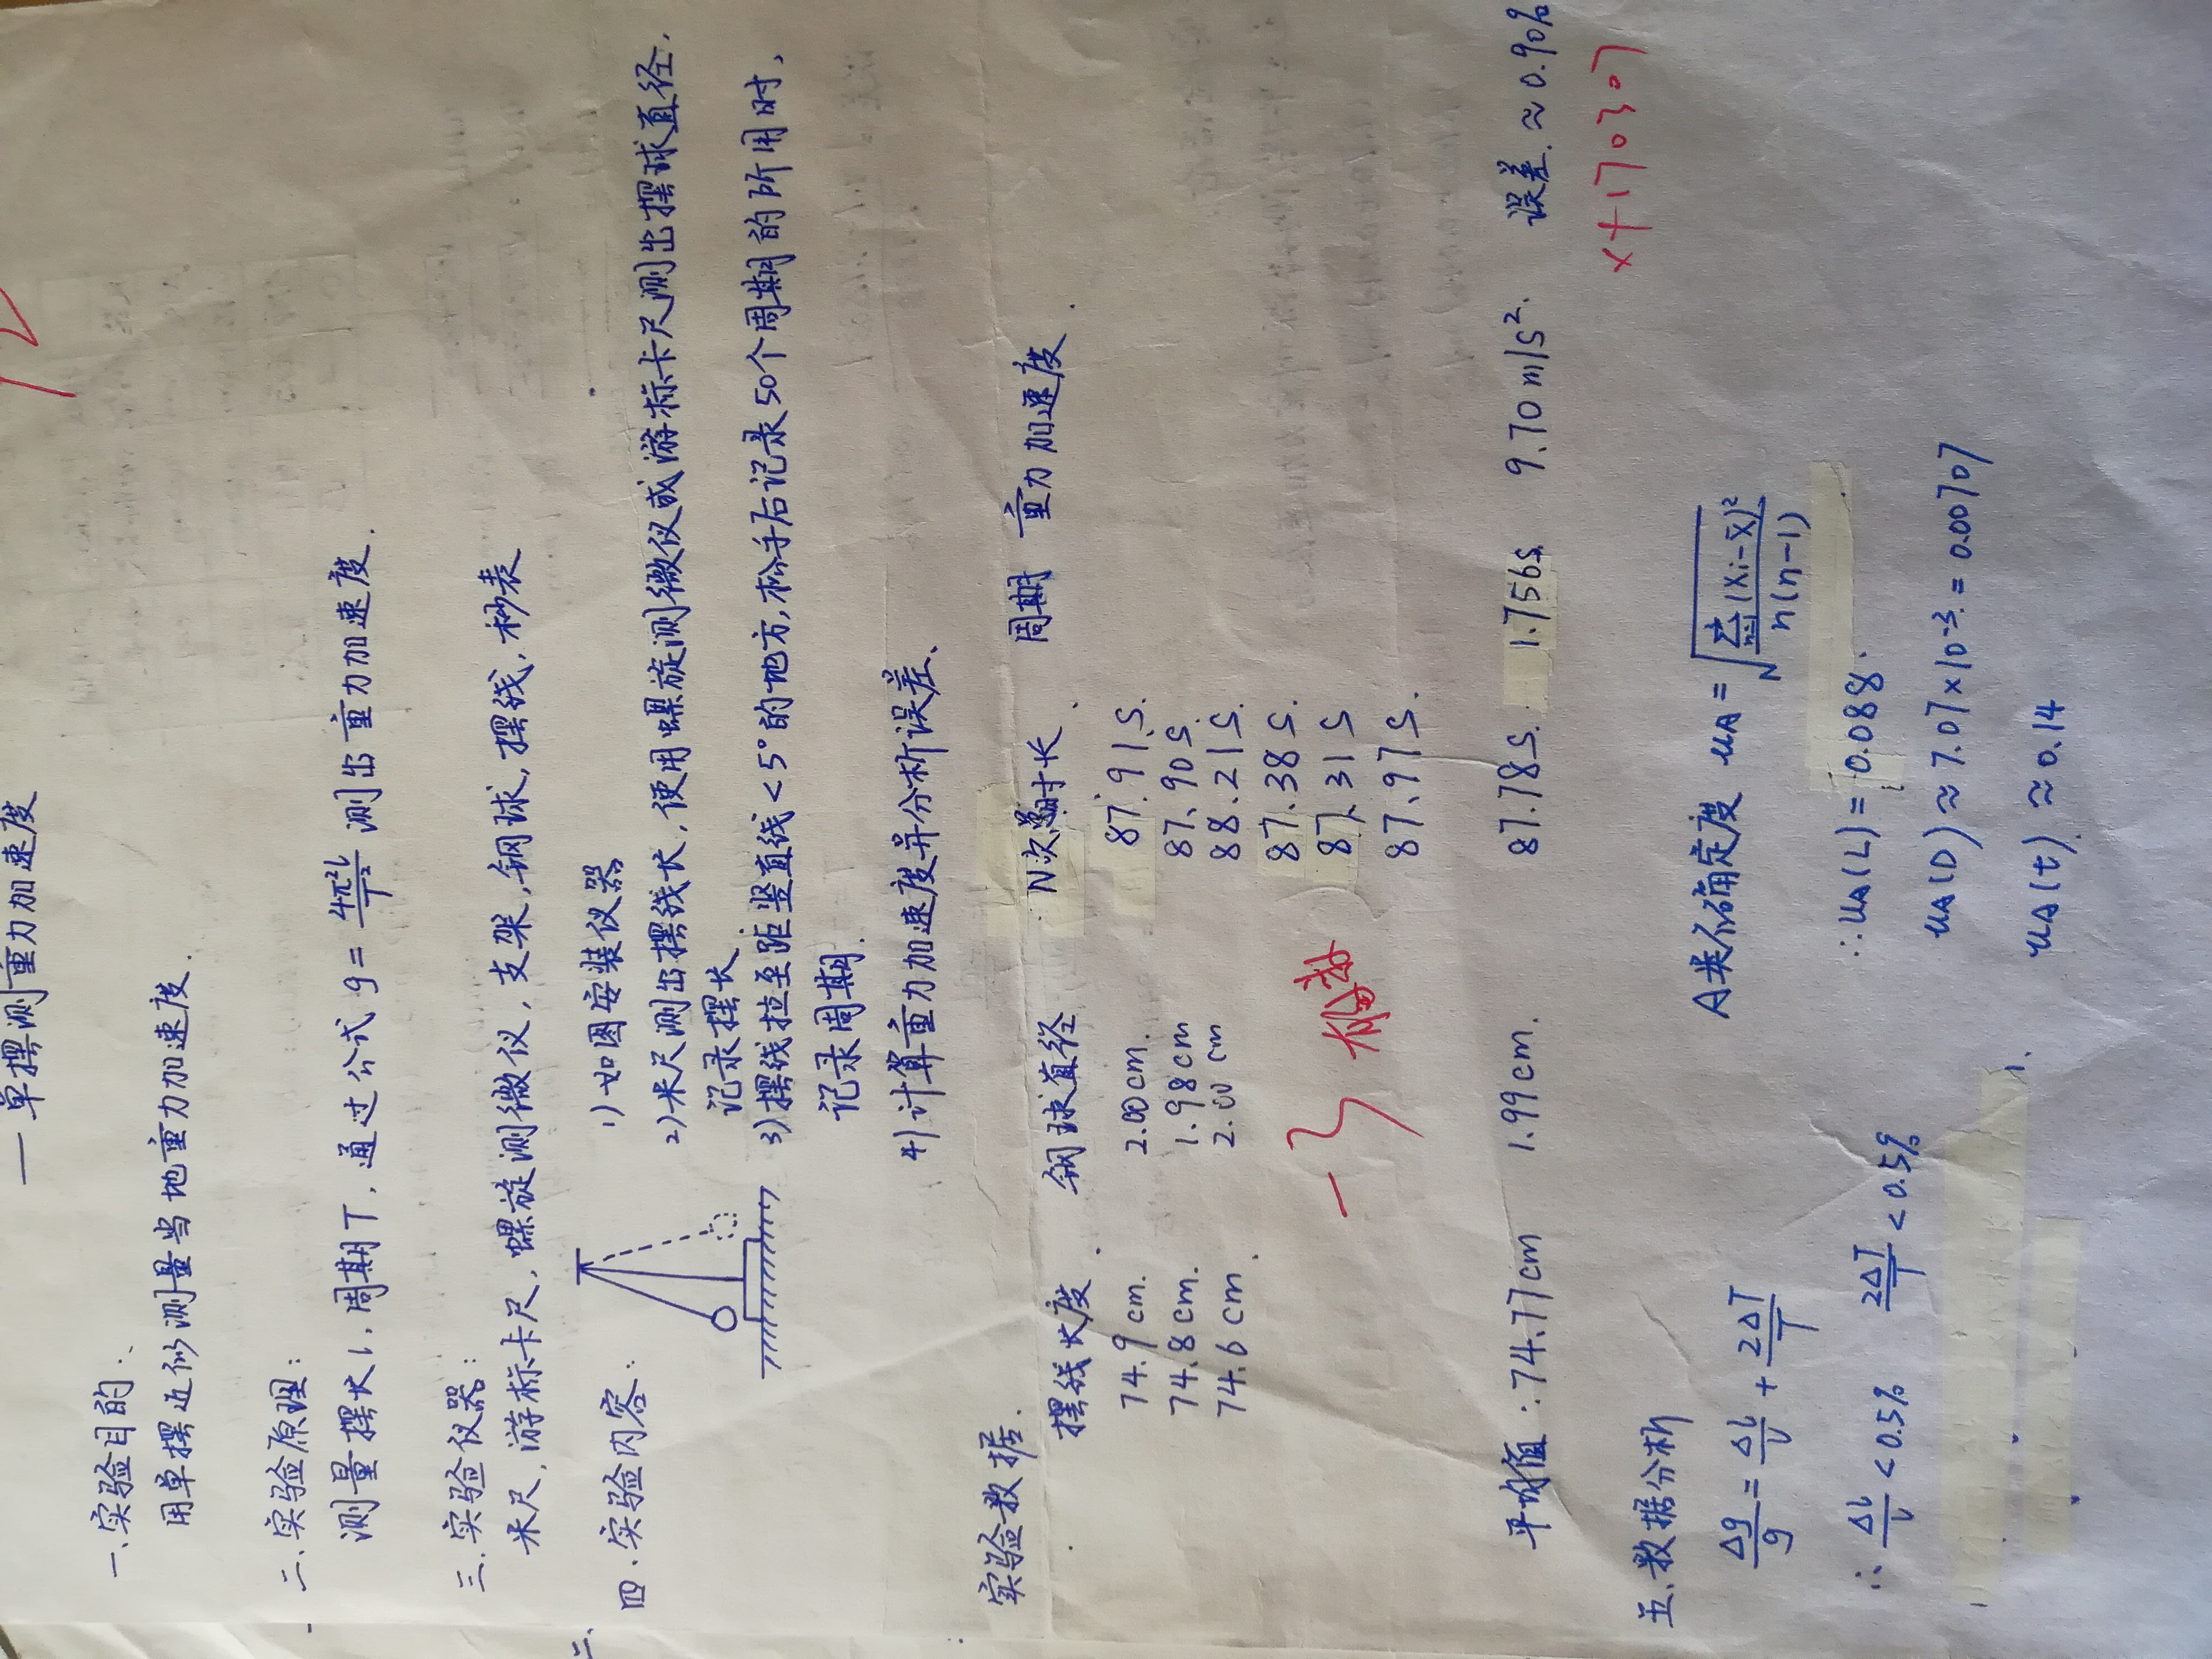 — 单摆测重力加速度
12
一、实验目的.
用单摆近似测量当地重力加速度.
二、实验原理:
测量摆长l,周期T,通过公式 g = 4π²l/T² 测出重力加速度.
三.实验仪器:
米尺,游标卡尺,螺旋测微仪,支架,钢球,摆线,秒表
二、
四.实验内容:
1)如图安装仪器
2)米尺测出摆线长,使用螺旋测微仪或游标卡尺测出摆球直径,
记录摆长.
3)摆线拉至距竖直线<5°的地方,松手后记录50个周期的所用时,
记录周期.
4)计算重力加速度并分析误差、
实验数据.
摆线长度. 钢球直径 N次总时长. 周期 重力加速度.
74.9cm. 2.00cm. 87.91s.
74.8cm. 1.98cm 87.90s.
74.6cm. 2.00cm 88.21s.
87.38s.
87.31s
87.97s.
-3 有效数
平均值:74.77cm 1.99cm. 87.78s. 1.756s. 9.70m/s². 误差.≈0.90%
x+170307
五、数据分析
Δg/g = Δl/l + 2ΔT/T
A类不确定度 uA = √(Σ(xi-x̄)²/n(n-1))
∴ Δl/l <0.5% 2ΔT/T <0.5%
∴uA(L) = 0.088.
uA(D) ≈ 7.07×10⁻³ = 0.00707
uA(t) ≈ 0.14